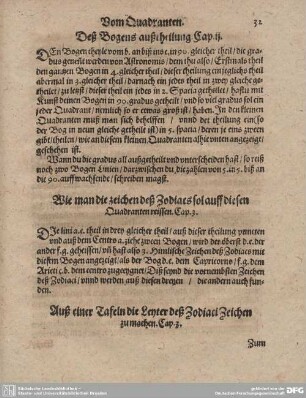 Vom Quadranten. 32
Deß Bogens außtheilung Cap.ij.
DEn Bogen theyle vom b. an biß ins c. in 90. gleicher theil / die gra-
dus genent werden von Astronomis / dem thu also / Erstmals theil
den gantzen Bogen in 4. gleicher theil / dieser theilung ein jeglichs theil
abermal in 3. gleicher theil / darnach ein jedes theil in zwey gleiche ge-
theilet / zu letzt / dieser theil ein jedes in 2. Spacia getheilet / hastu mit
Kunst deinen Bogen in 90. gradus getheilt / und so viel gradus sol ein
jeder Quadrant / nemlich so er etwas groß ist / haben. In den kleinen
Quadranten muß man sich behelffen / unnd der theilung ein (so
der Bog in neun gleiche getheilt ist) in 5. spatia / deren je eins zween
gibt / theilen / wie an diesem kleinen Quadranten alhie unten angezeigt /
geschehen ist.
Wann du die gradus all außgetheilt und unterscheiden hast / so reiß
noch zwo Bogen Linien / darzwischen du die zahlen von 5. in 5. biß an
die 90. auffwachsende / schreiben magst.
Wie man die zeichen deß Zodiacs sol auff diesen
Quadranten reissen. Cap.3.
Die lini a.e. theil in drey gleicher theil / auß dieser theilung puncten
und auß dem Centro a. ziehe zween Bogen / wird der öberst d.e. der
ander f.g. geheissen / uñ hast also 3. Himlische Zeichen deß Zodiacs mit
diesen Bogen angezeigt / als der Bog d.e. dem Capricorno / f.g. dem
Arieti / c.b. dem centro zugeeygnet / Diß seynd die vornembsten Zeichen
deß Zodiaci / unnd werden auß diesen dreyen / die andern auch fun-
den.
Auß einer Tafeln die Leyter deß Zodiaci Zeichen
zu machen. Cap.3.
Zum